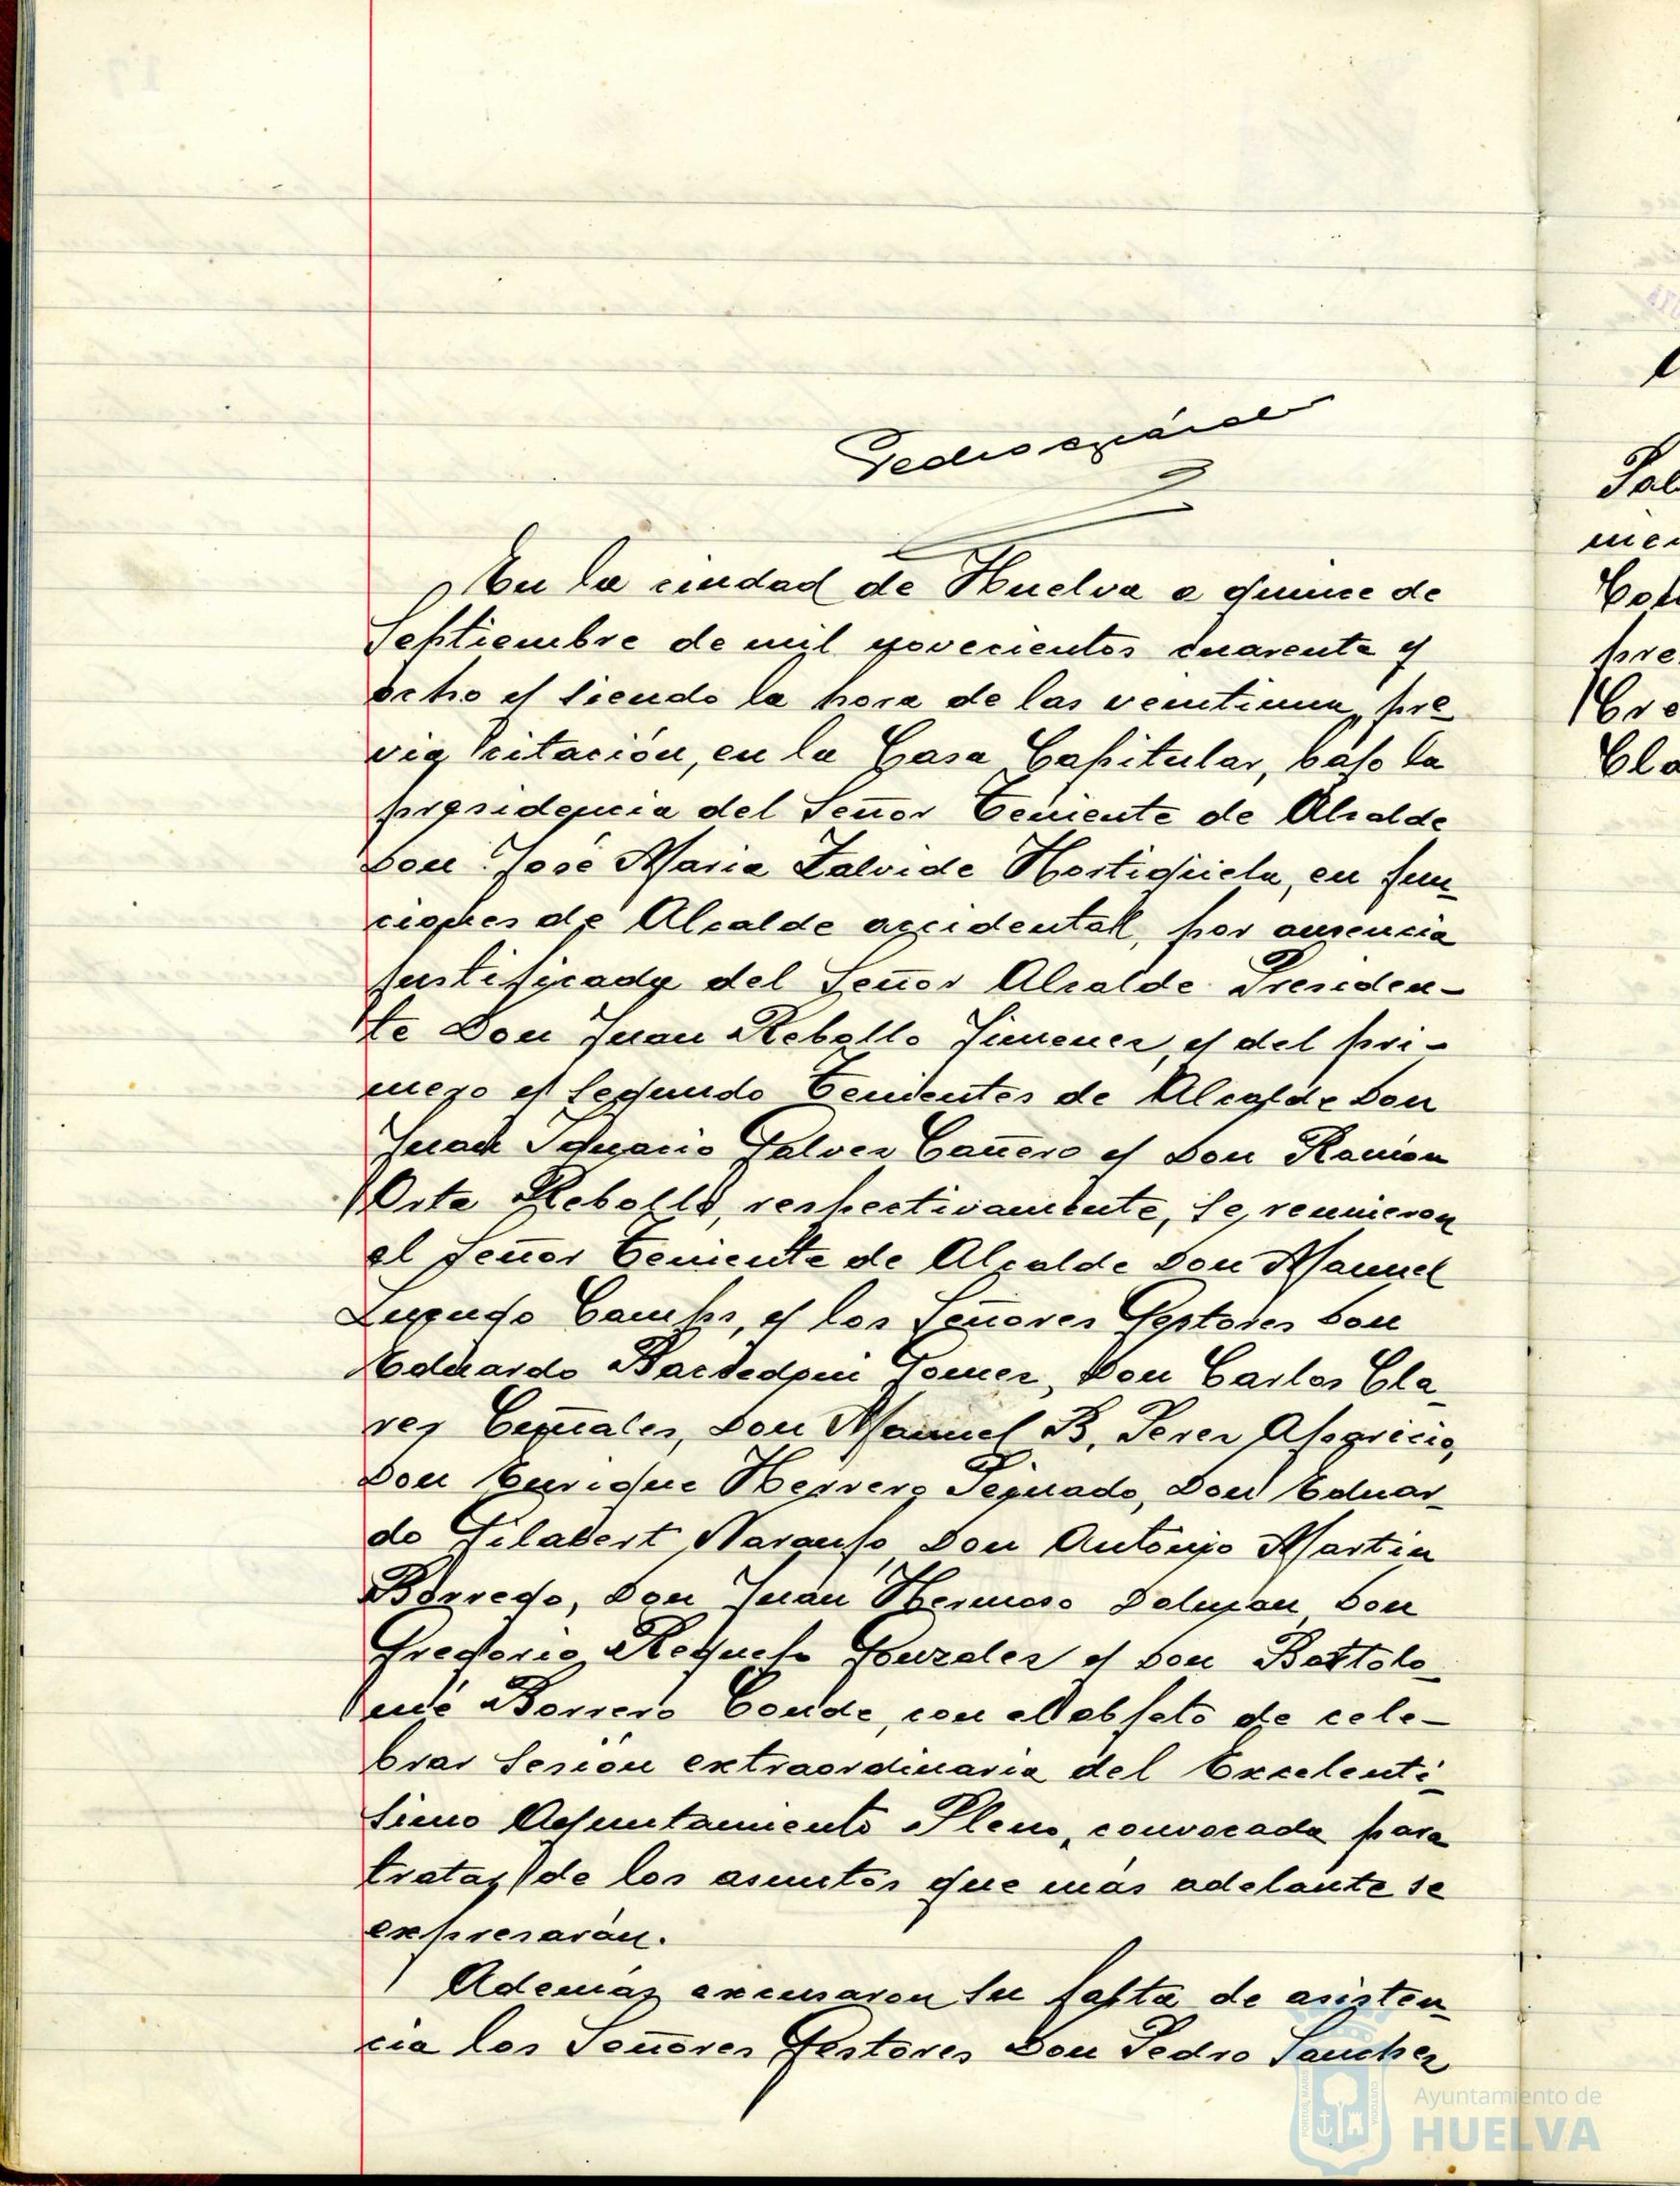 En la ciudad de Huelva a quince de
Septiembre de mil novecientos cuarenta y
ocho y siendo la hora de las veintiuna, pre-
via citación, en la Casa Capitular, bajo la
presidencia del Señor Teniente de Alcalde
Don José Maria Zalvide Hortigüela, en fun-
ciones de Alcalde accidental, por ausencia
justificada del Señor Alcalde Presiden-
te Don Juan Rebollo Jimenez, y del pri-
mero y segundo Tenientes de Alcalde Don
Juan Ignacio Galvez Cañero y Don Ramón
Orta Rebollo, respectivamente, se reunieron
el señor Teniente de Alcalde Don Manuel
y los Señores Gestores Don
Eduardo Gomez, Don Carlos Cla-
res Don Manuel B. Perez
Don Enrique Herrero Don Eduar-
do Gilabert Naranjo, Don Antonio Martin
Borrego, Don Juan Hermoso Don
Gregorio Gonzalez y Don Bartolo-
mé Borrero Conde, con el objeto de cele-
brar sesión extraordinaria del Excelentí-
simo Ayuntamiento Pleno, convocada para
tratar de los asuntos que más adelante se
expresarán.
Además excusaron su falta de asisten-
cia los Señores Gestores Don Pedro Sanchez
Ayuntamiento de
HUELVA